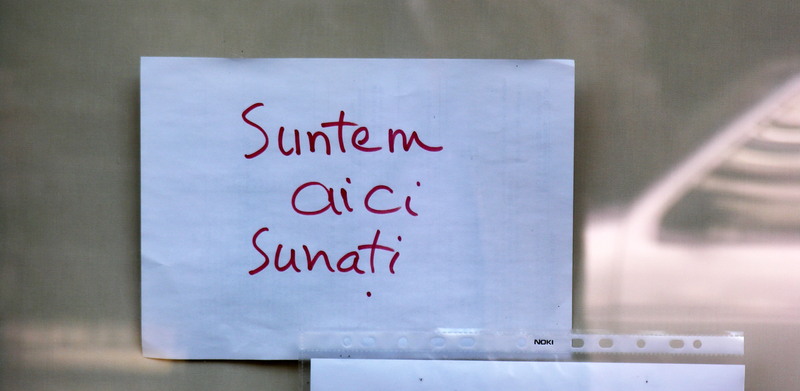 Suntem
aici
Sunați
NOKI